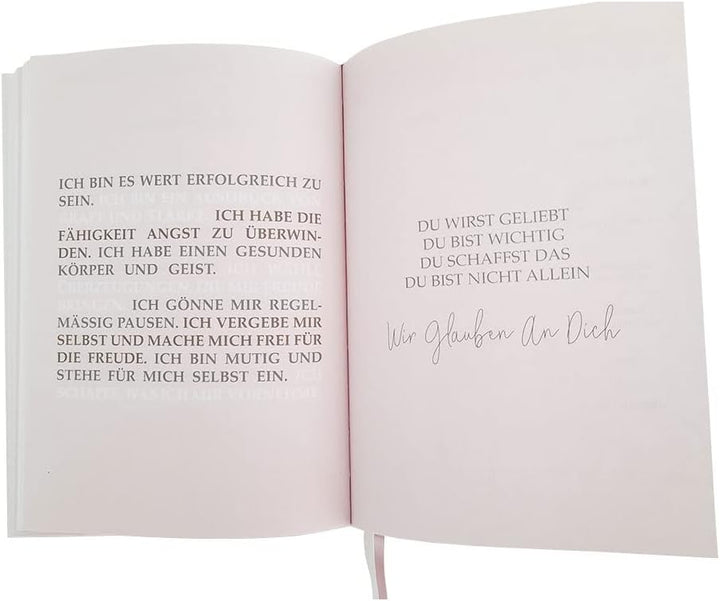 ICH BIN ES WERT ERFOLGREICH ZU
SEIN. ICH BIN EIN AUSDRUCK VON
KRAFT UND STÄRKE. ICH HABE DIE
FÄHIGKEIT ANGST ZU ÜBERWIN-
DEN. ICH HABE EINEN GESUNDEN
KÖRPER UND GEIST. ICH WÄHLE
ÜBERZEUGUNGEN, DIE MIR FREUDE
BRINGEN. ICH GÖNNE MIR REGEL-
MÄSSIG PAUSEN. ICH VERGEBE MIR
SELBST UND MACHE MICH FREI FÜR
DIE FREUDE. ICH BIN MUTIG UND
STEHE FÜR MICH SELBST EIN. ICH
SCHAFFE, WAS ICH MIR VORNEHME.
DU WIRST GELIEBT
DU BIST WICHTIG
DU SCHAFFST DAS
DU BIST NICHT ALLEIN
Wir Glauben An Dich